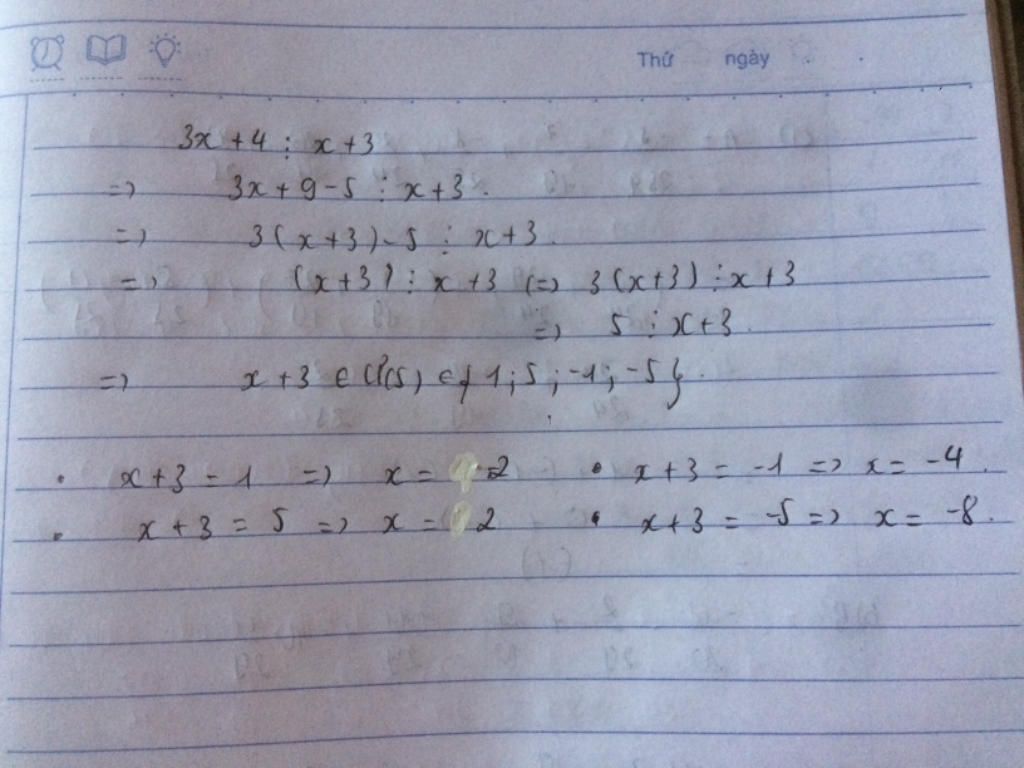 Thứ ngày
3x + 4 ⋮ x + 3
=> 3x + 9 - 5 ⋮ x + 3.
=> 3(x+3) - 5 ⋮ x+3.
=> (x+3) ⋮ x+3 (=> 3(x+3) ⋮ x+3
=> 5 ⋮ x+3.
=> x+3 ∈ Ư(5) ∈ {1; 5; -1; -5}.
• x+3 = 1 => x = -2 • x+3 = -1 => x = -4.
• x+3 = 5 => x = 2 • x+3 = -5 => x = -8.